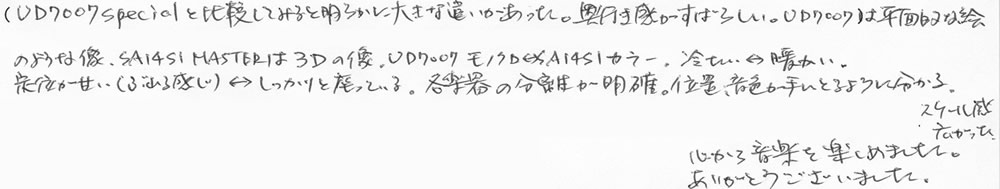 (UD7007specialと比較してみると明らかに大きな違いがあった。奥行き感がすばらしい。UD7007は平面的な絵
のような像、SA14S1 MASTERは3Dの像。UD7007モノクロ⇔SA14S1カラー。冷たい⇔暖かい。
定位が甘い(ふれる感じ)⇔しっかりと座っている。各楽器の分離が明確。位置、音色が手にとるように分かる。
スケール感
広がった。
心から音楽を楽しめました。
ありがとうございました。